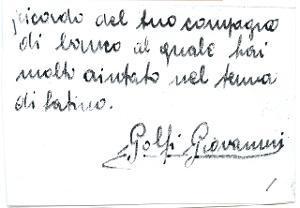 ricordo del tuo compagno
di banco al quale hai
molto aiutato nel tema
di latino.
Golfi Giovanni